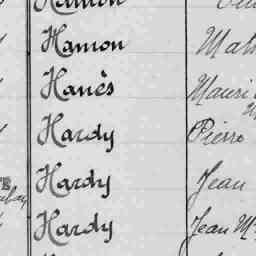 Hamon
Hamon
Hanès
Hardy Pierre
Hardy Jean
Hardy Jean M